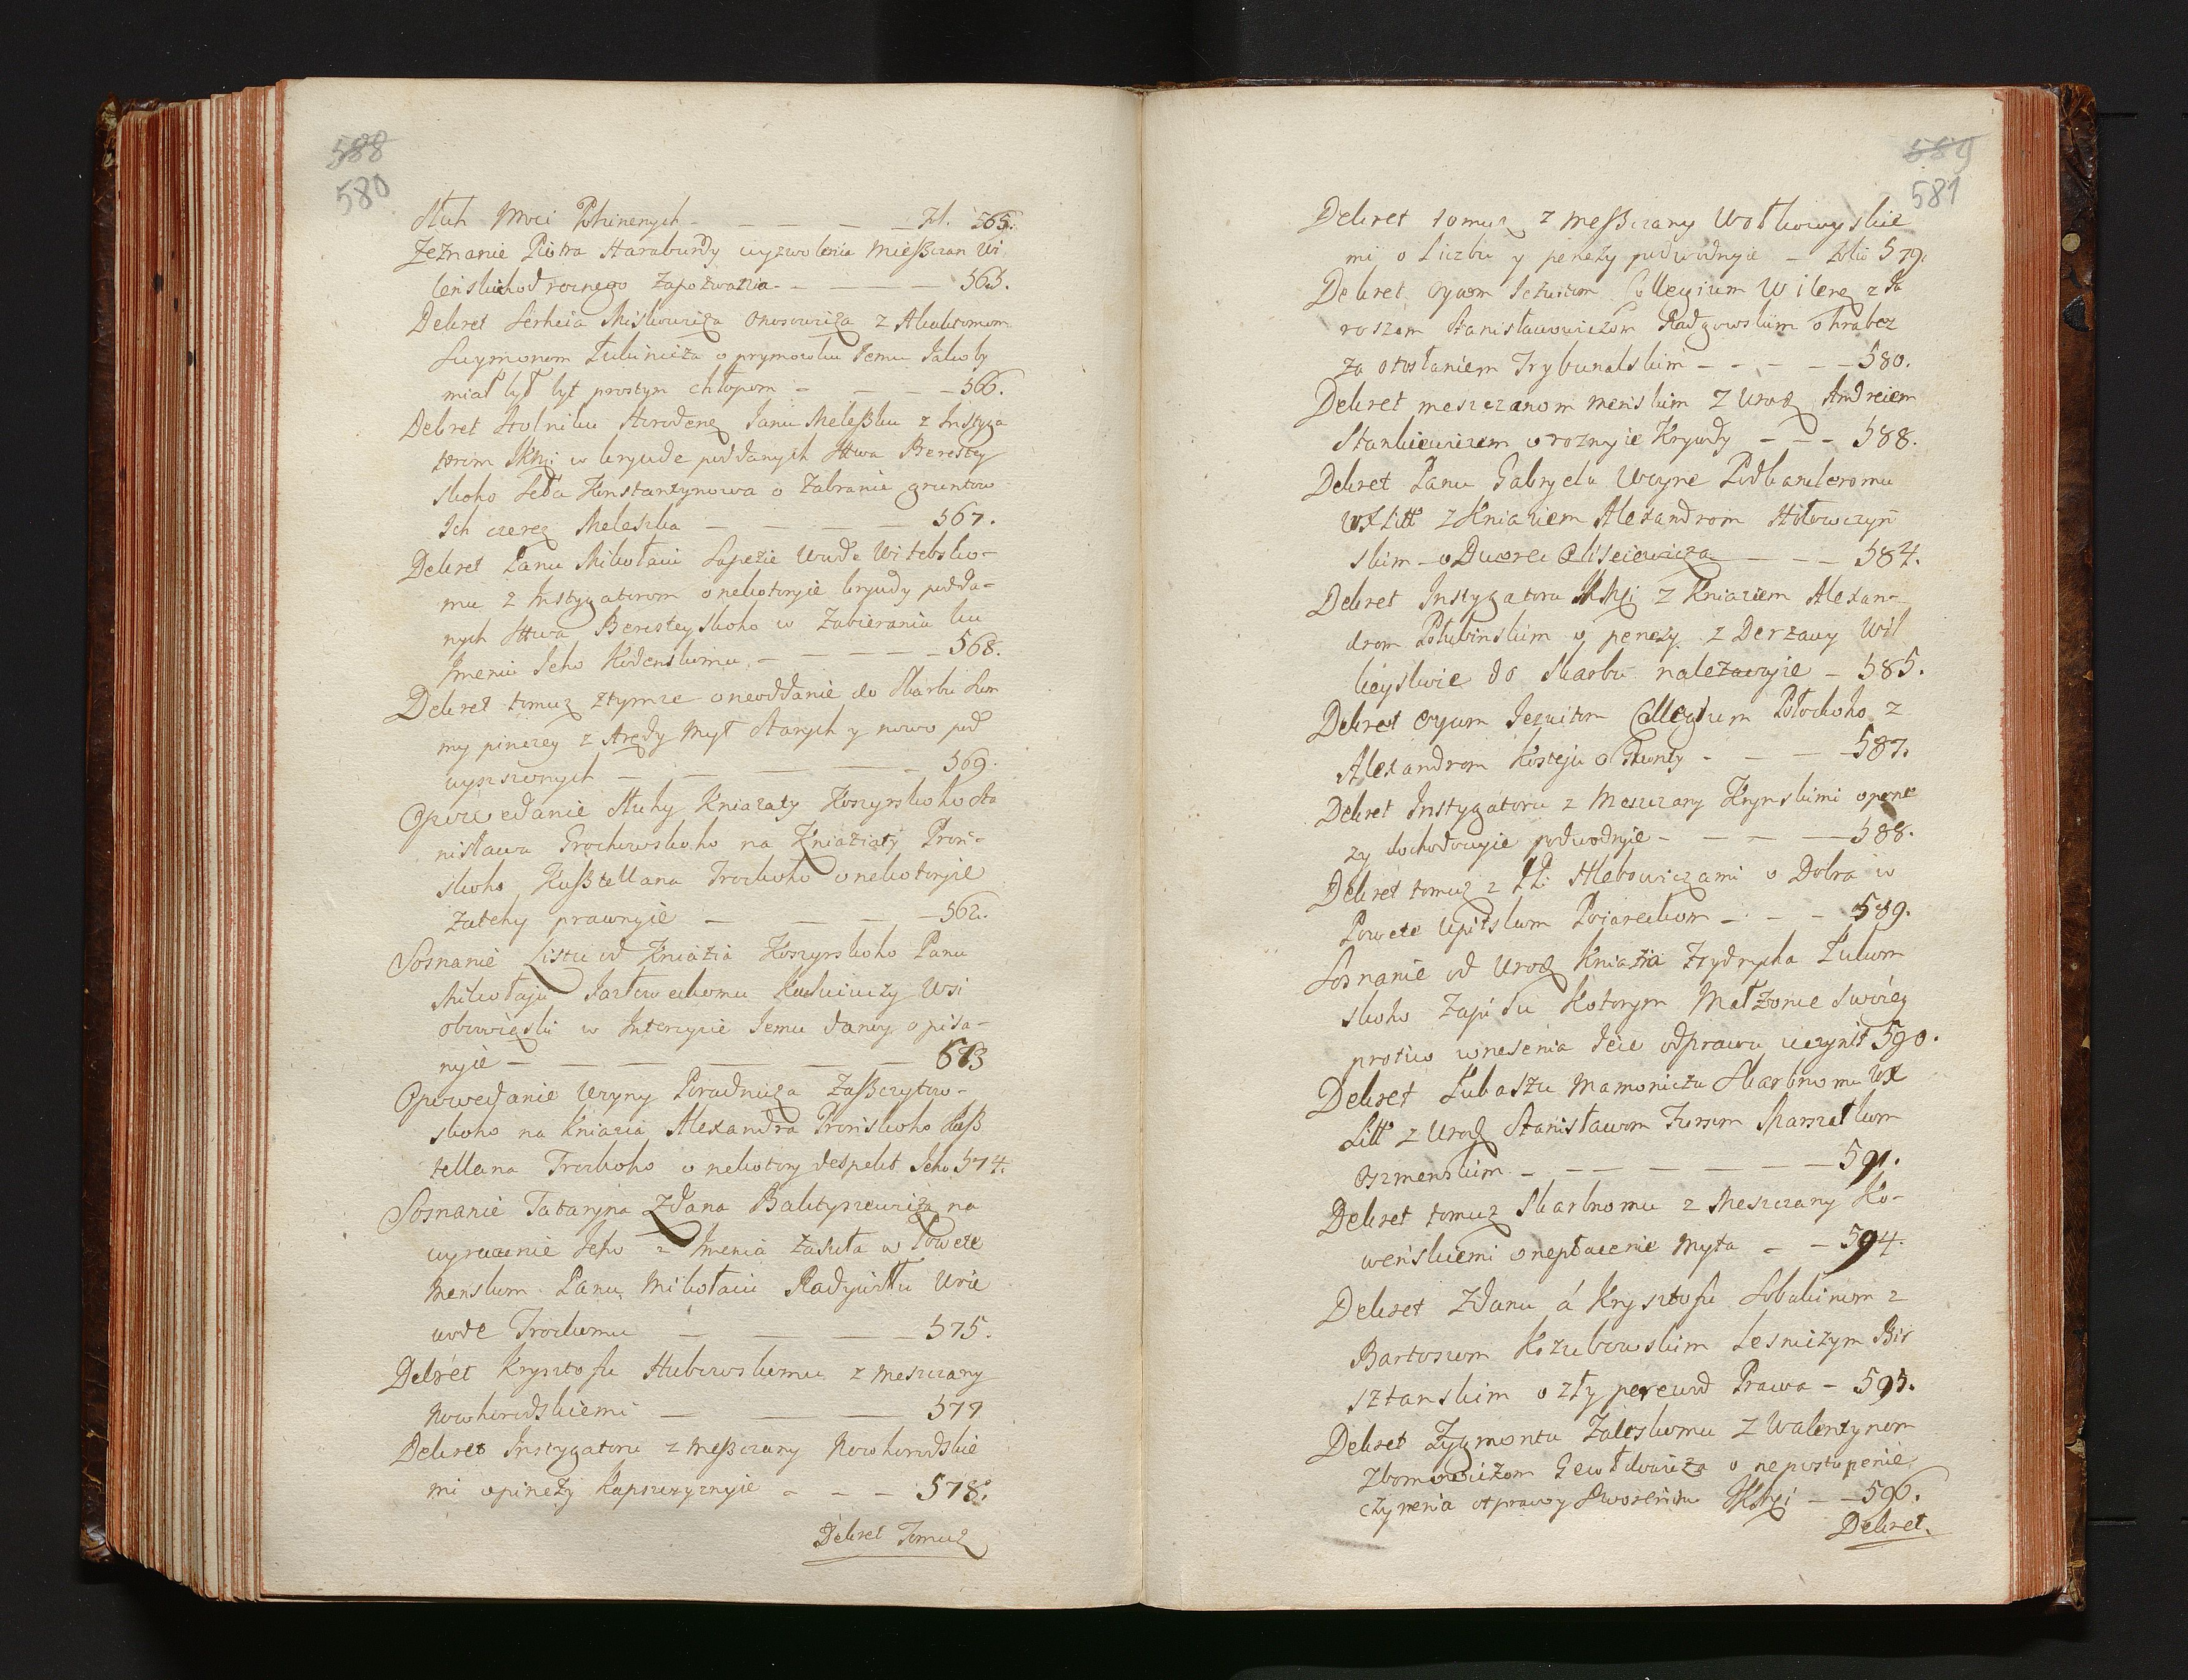 588
580
Słuh Moci Pohinenych - - - - Fol. 565.
Zeznanie Piotra Haraburdy wyzwolenia Mießczan Wi
leńskich od rocznego Zapozwania - - - - 565.
Dekret Serheia Miskowicza Onosowicza z
Szymonom Łukinicza o prymowku Jemu Jakoby
miał był byt prostym chłopom - - - - 566.
Dekret Stolniku Horodenz Janu Meleßku z Instyga
torom JKMj w krywde poddanych Sttwa Berestey
skoho Seła Konstantynowa o Zabranie gruntow
Ich czerez Meleszka - - - - 567.
Dekret Panu Mikołaiu Sapezie Wwde Witebsko-
mu z Instygatorom o nekotoryie krywdy podda-
nych Sttwa Beresteyskoho w Zabieraniu ku
Imeniu Jeho Kodenskomu - - - - 568.
Dekret tomuz ztymze o neoddanie do Skarbu Sum
my pinezey z Arędy Myt Starych y nowo pod
wyzszonych - - - - 569.
Opowedanie Słuhy Kniazaty Koszyrskoho Sta
nisława Grochowskoho na Kniaziaty Proń-
skoho Kaßtellana Trockoho o nekotoryie
zatehy prawnyie - - - - 562.
Soznanie Listu od Kniazia Koszyrskoho Panu
Mikołaju Jasłowieckomu Kuchmistrzy Wsi
obowięzki w Intercyzie Jemu danoy opisa-
nyie - - - - 573
Opowedanie Uryny Poradnicza Zaßczytow-
skoho na Kniazia Alexandra Prońskoho Kaß
tellana Trockoho o nekotory despekt Jeho 574.
Soznanie Tataryna Zdana Baktyszewicza na
wyrwcenie Jeho z Imenia Zasuła w Powete
Menskom Panu Mikołaiu Radywiłłu Woie
wode Trockomu - - - 575.
Dekret Krysztofu Hubowskomu z meszczany
Nowhorodskiemi - - - 577
Dekret Instygatoru z Meßczany Nowhorodskie
mi o pinezy Kapszczyznyie - - - 578.
Dekret Tomuz
589
581
Dekret tomuz z Meßczany Wołkowyskie
mi o Liczbu y penezy podwodnyie - Folio 579.
Dekret Oycom Jezuitom Collegium Wilenz z Ja
roszom Stanisławowiczom Radzowskim o hrabez
za otosłaniem Trybunalskim - - - - - 580.
Dekret meszczanom menskim z Uroz Andreiem
Stankiewiczem o roznyie Krywdy - - - 588.
Dekret Panu Gabryelu Woyne Podkancleromu
WXLitt z Kniaziem Alexandrom Hołowczyń
skim o Dworec Oliseiewicza - - - 584.
Dekret Instygatoru JKMj z Kniaziem Alexan-
drom Połubinskim o penezy z Derzawy Wil
kiyskoie do Skarbu nalezaczyie - 585.
Dekret Oycom Jezuitom Collegium Połockoho z
Alexandrom Kosteju o Grunty - - - 587.
Dekret Instygatoru z Meszczany Krynskimi o pene
zy dochodowyie podwodnyie - - - - 588.
Dekret tomuz z PP. Hlebowiczami o Dobra w
Powete Upitskom Poiareckom - - - 589.
Soznanie od Uroz Kniazia Frydrycha Łukom
skoho Zapisu Kotorym Małzonce Swoiey
protiw wnesenia Jeie odprawu uczynił 590.
Dekret Łukaszu Mamoniczu Skarbnomu WX
Litt z Uroz Stanisławom Fursom Marszałkom
Oszmenskim - - - - - - 591.
Dekret tomuz Skarbnomu z Meszczany Ko-
weńskiemi o nepłacenie Myta - - 594.
Dekret Zdanu á Krysztofu Sobakinom z
Bartoszom Kozubowskim Lesniczym Bir
sztanskim o zły perewod Prawa - 595.
Dekret Zygmontu Zaleskomu z Walentynom
Gewołtowicza o nepostupenie
Czynenia otprawy Dworeninu JKMj - - 596.
Dekret.